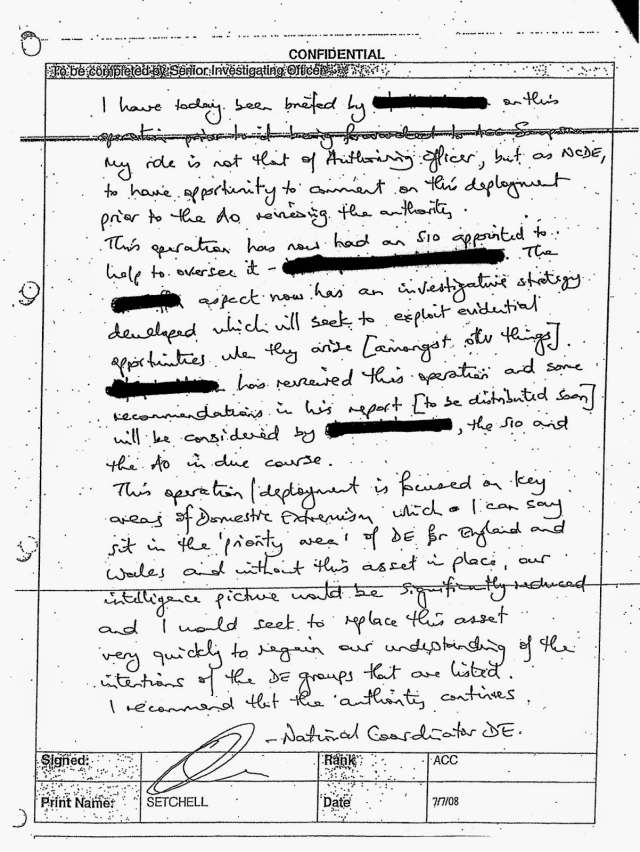 CONFIDENTIAL
To be completed by Senior Investigating Officer
I have today been briefed by on this
operation prior to it being forwarded to ACC Sampson
My role is not that of Authorising Officer, but as NCDE,
to have opportunity to comment on this deployment
prior to the AO reviewing the authority.
This operation has now had an SIO appointed to
help to oversee it - . The
aspect now has an investigative strategy
developed which will seek to exploit evidential
opportunities when they arise [amongst other things].
has reviewed this operation and some
recommendations in his report [to be distributed soon]
will be considered by , the SIO and
the AO in due course.
This operation/deployment is focused on key
areas of Domestic Extremism which I can say
sit in the 'priority area' of DE for England and
Wales and without this asset in place, our
intelligence picture would be significantly reduced
and I would seek to replace this asset
very quickly to regain our understanding of the
intentions of the DE groups that are listed.
I recommend that the authority continues.
- National Coordinator DE.
Signed: Rank ACC
Print Name: SETCHELL Date 7/7/08